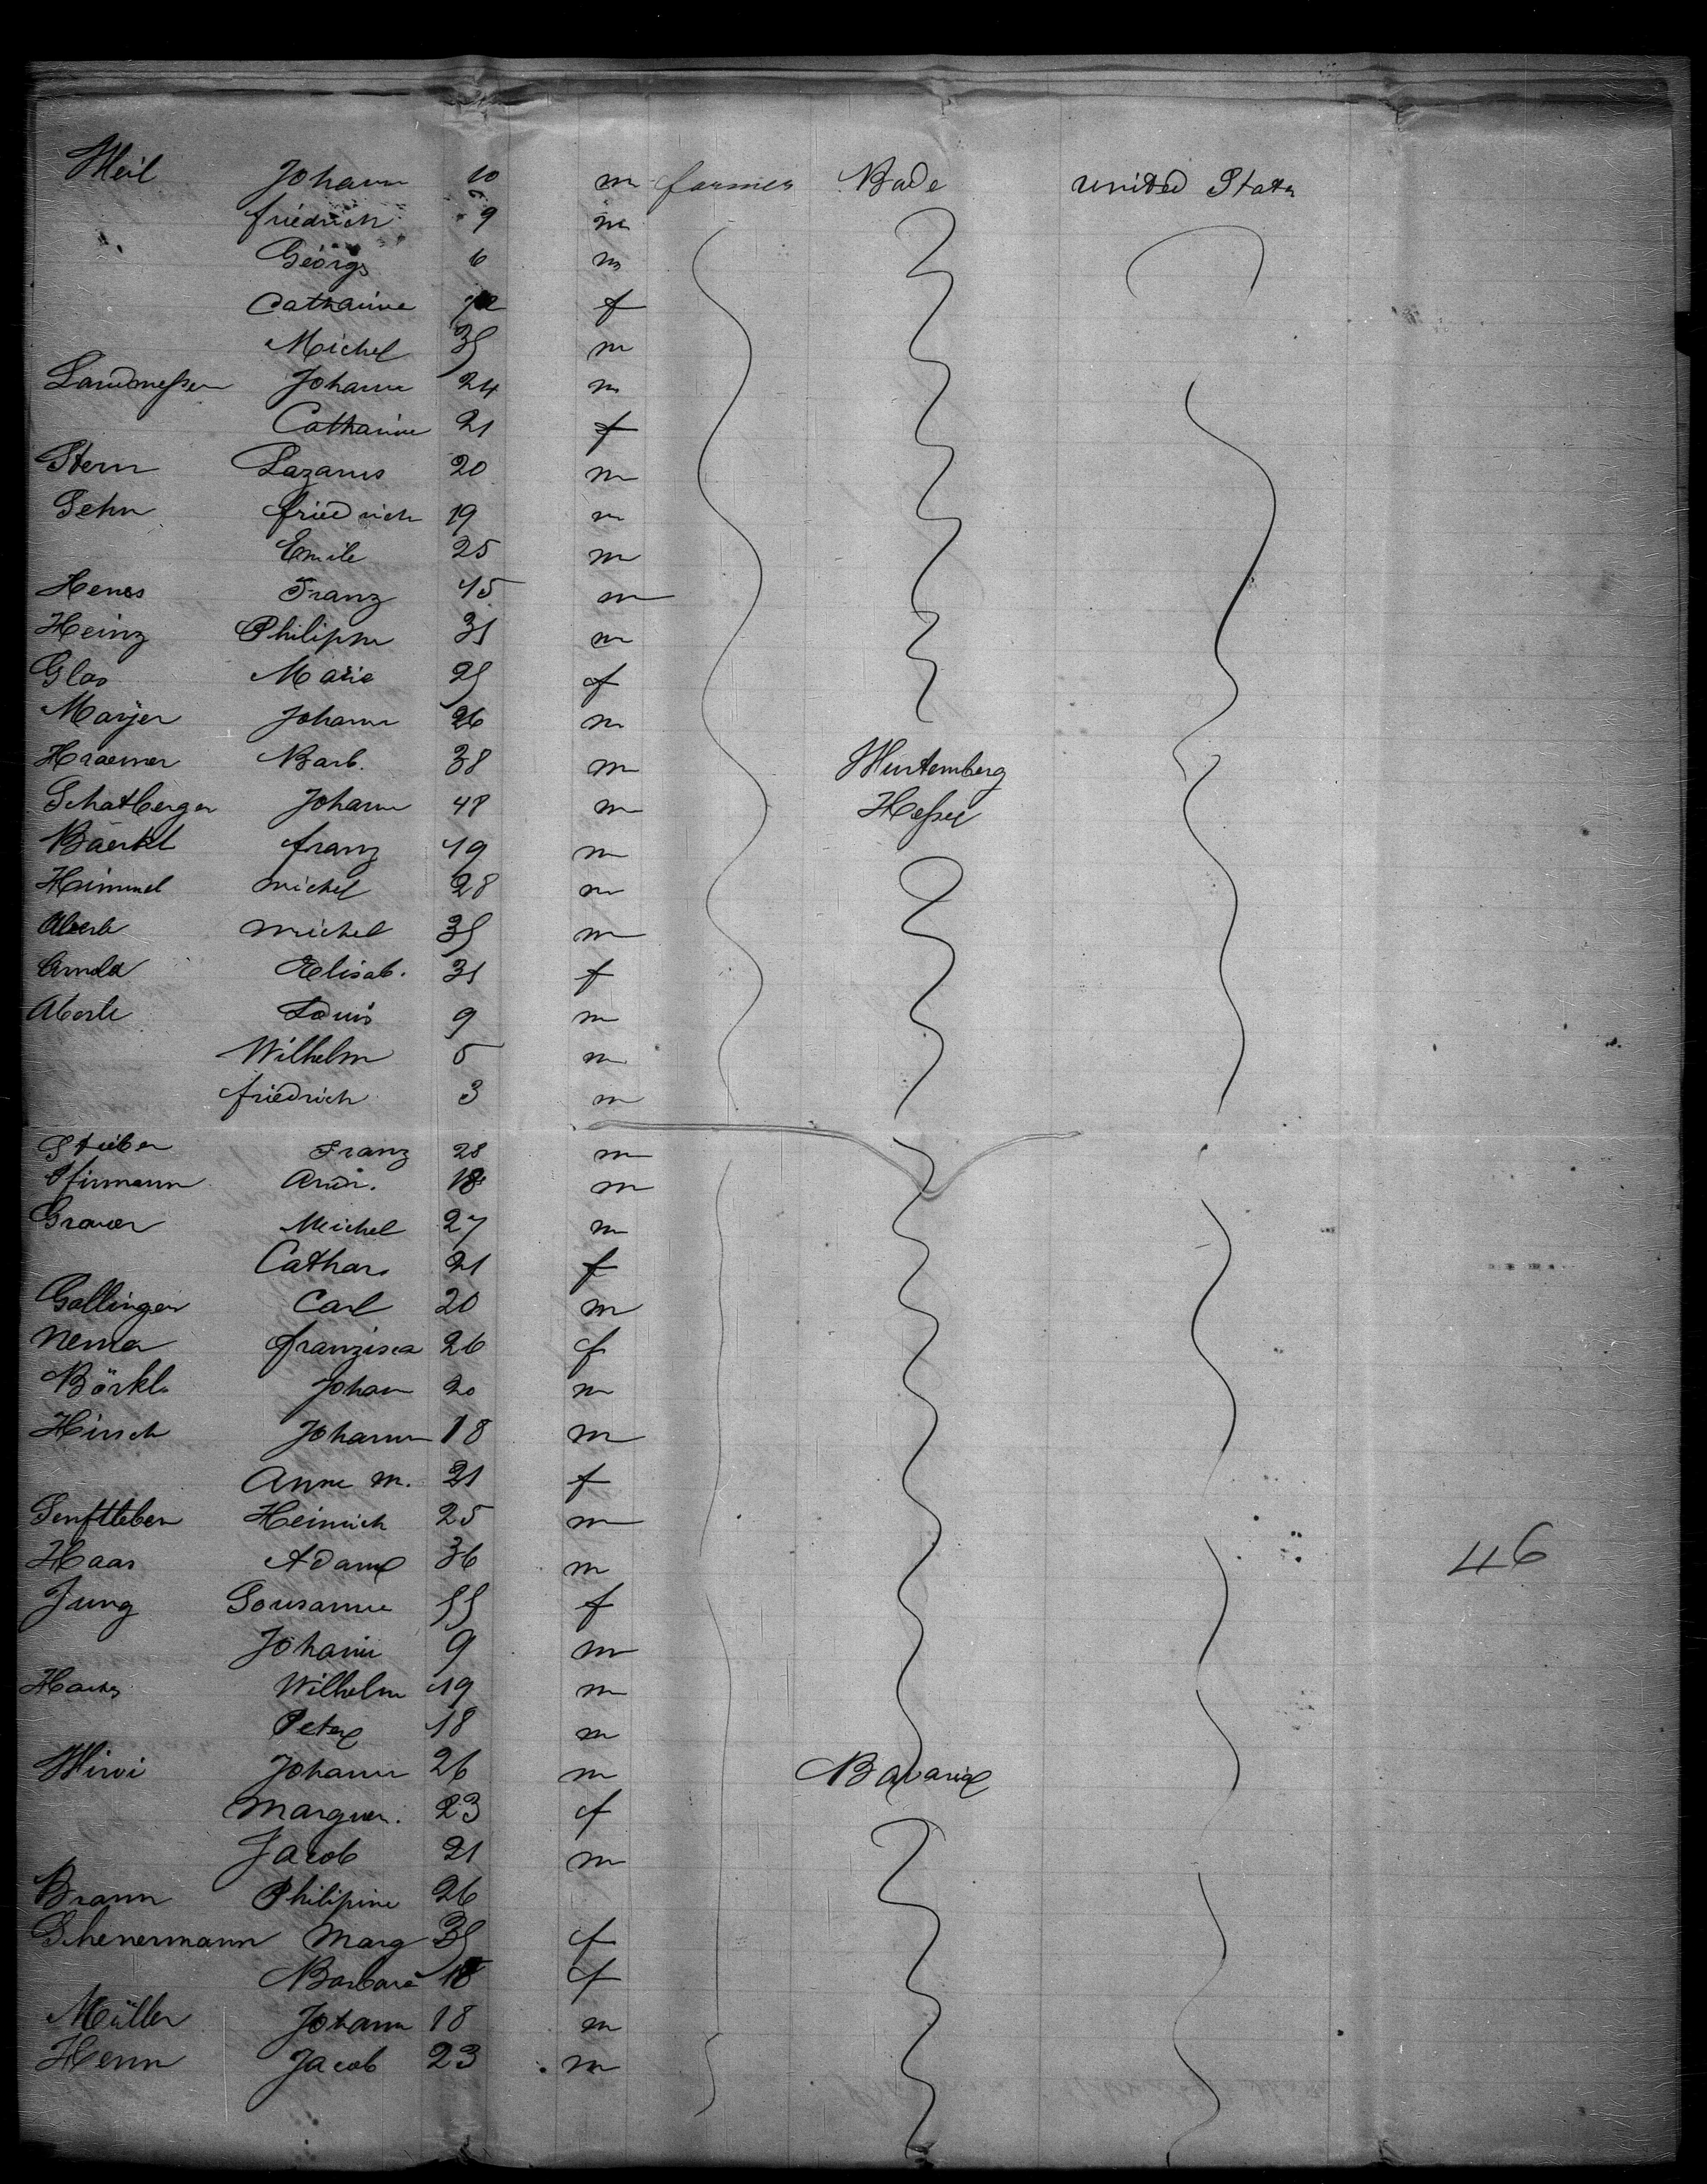 Weil Johann 10 m farmer Bade United States
friedrich 9 m
Georg 6 m
Catharine f
Michel 35 m
Landmesser Johann 24 m
Catharine 21 f
Stern Lazarus 20 m
Sehn friedrich 19 m
Emile 25 m
Henes Franz 45 m
Heinz Philippe 31 m
Glas Marie 25 f
Mayer Johann 26 m
Kraemer Barb. 38 m Wurtemberg
Schatberger Johann 48 m Hesse
Baerkl franz 19 m
Himmel michel 28 m
Aberle michel 35 m
Arnold Elisab. 31 f
Aberle Louis 9 m
Wilhelm 5 m
friedrich 3 m
Stieber Franz 28 m
18 m
Graver Michel 27 m
Cathar. 21 f
Gallinger Carl 20 m
franzisca 26 f
Börkl Johan 20 m
Hirsch Johann 18 m
Anne M. 21 f
Senftleben Heinrich 25 m
Haas Adam 36 m 46
Jung Sousanne 55 f
Johann 9 m
Wilhelm 19 m
Peter 18 m
Johann 26 m Bavaria
Marguer. 23 f
Jacob 21 m
Braun Philipine 26
Schenermann Marg 35 f
Barbara 18 f
Müller Johann 18 m
Henn Jacob 23 m